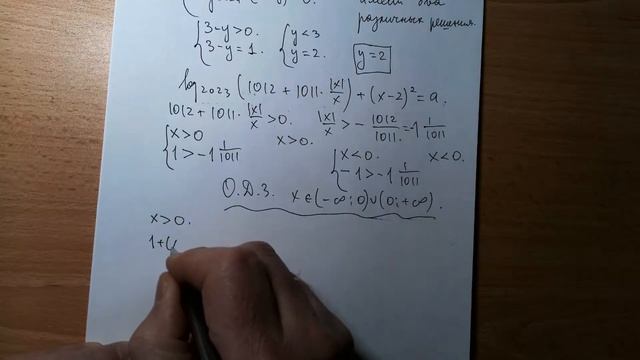 имеет два
различных решения.
{3-y>0. {y<3
3-y=1. y=2. y=2
log₂₀₂₃(1012 + 1011·|x|/x) + (x-2)² = a.
1012 + 1011·|x|/x > 0. |x|/x > -1012/1011 = -1 1/1011
{x>0 x>0. {x<0. x<0.
1 > -1 1/1011 -1 > -1 1/1011
О.Д.З. x∈(-∞;0)∪(0;+∞).
x>0.
1+(